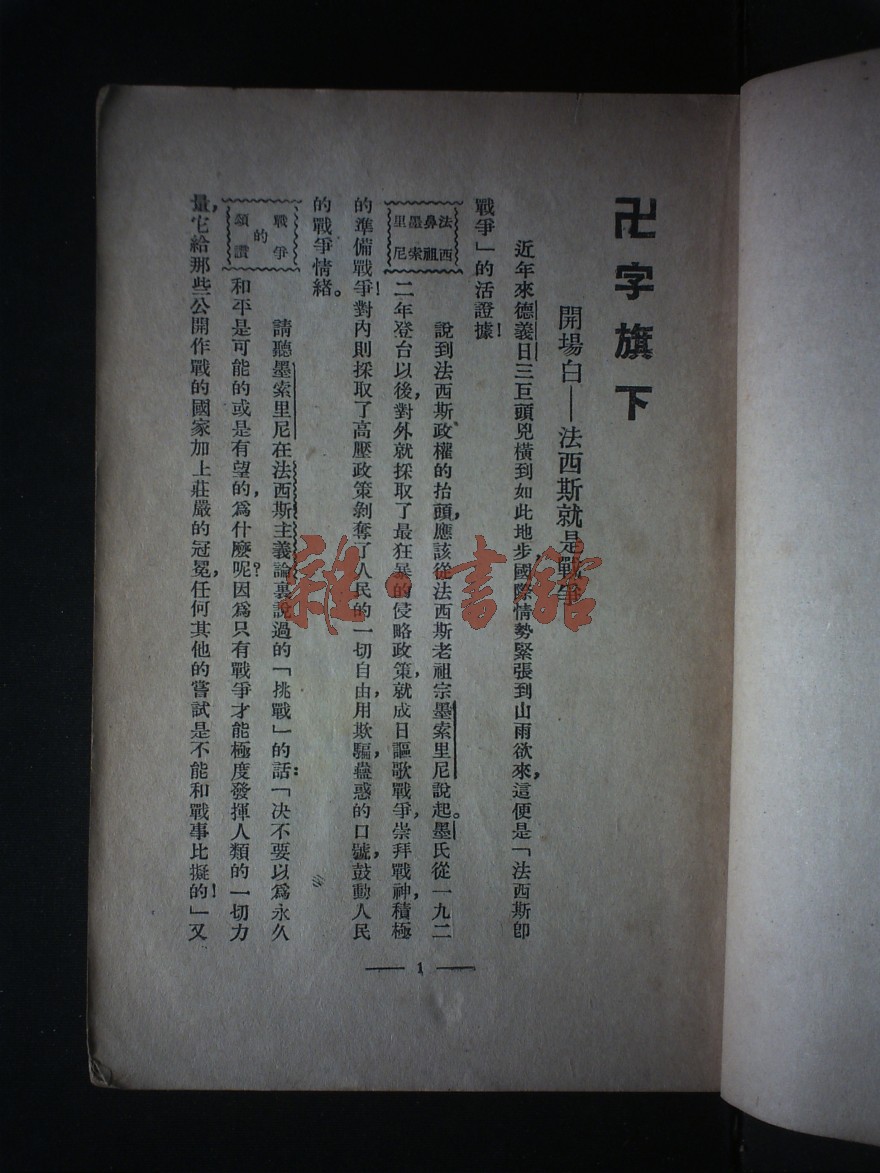 卍字旗下
開場白——法西斯就是戰爭
近年來德義日三巨頭兇橫到如此地步，國際情勢緊張到山雨欲來，這便是「法西斯卽
戰爭」的活證據！
法西
鼻祖
墨索
里尼
說到法西斯政權的抬頭，應該從法西斯老祖宗墨索里尼說起。墨氏從一九二
二年登台以後，對外就採取了最狂暴的侵略政策，就成日謳歌戰爭，崇拜戰神，積極
的準備戰爭！對內則採取了高壓政策剝奪了人民的一切自由，用欺騙蠱惑的口號，鼓動人民
的戰爭情緒。
戰爭
的
頌讚
請聽墨索里尼在法西斯主義論裏說過的「挑戰」的話：「决不要以爲永久
和平是可能的或是有望的，爲什麼呢？因爲只有戰爭才能極度發揮人類的一切力
量，它給那些公開作戰的國家加上莊嚴的冠冕，任何其他的嘗試是不能和戰事比擬的！」又
1
雜·書館